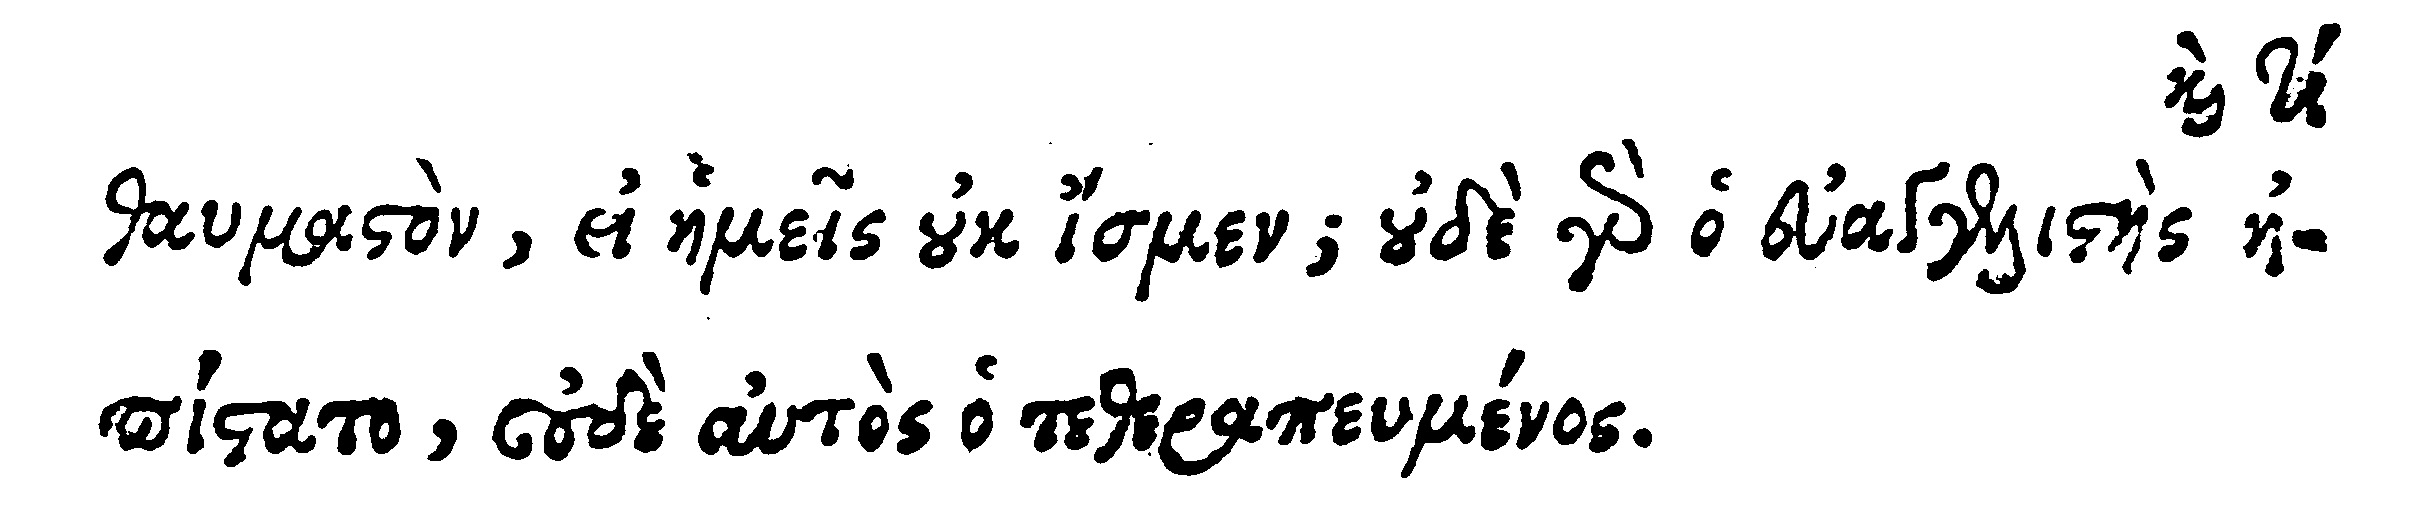 καὶ τί
θαυμαστὸν, εἰ ἡμεῖς οὐκ ἴσμεν; οὐδὲ γὰρ ὁ εὐαγγελιστὴς ἠ-
πίστατο, οὐδὲ αὐτὸς ὁ τεθεραπευμένος.